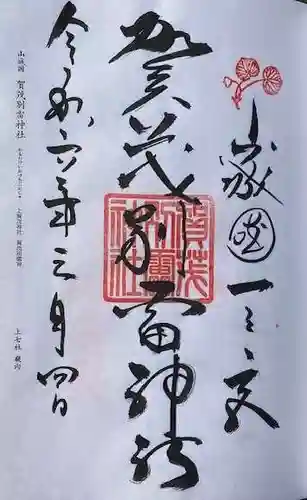 山城國一之宮
賀茂別雷神社
賀茂別雷社
令和六年三月四日
山城國 賀茂別雷神社
上七社 畿内